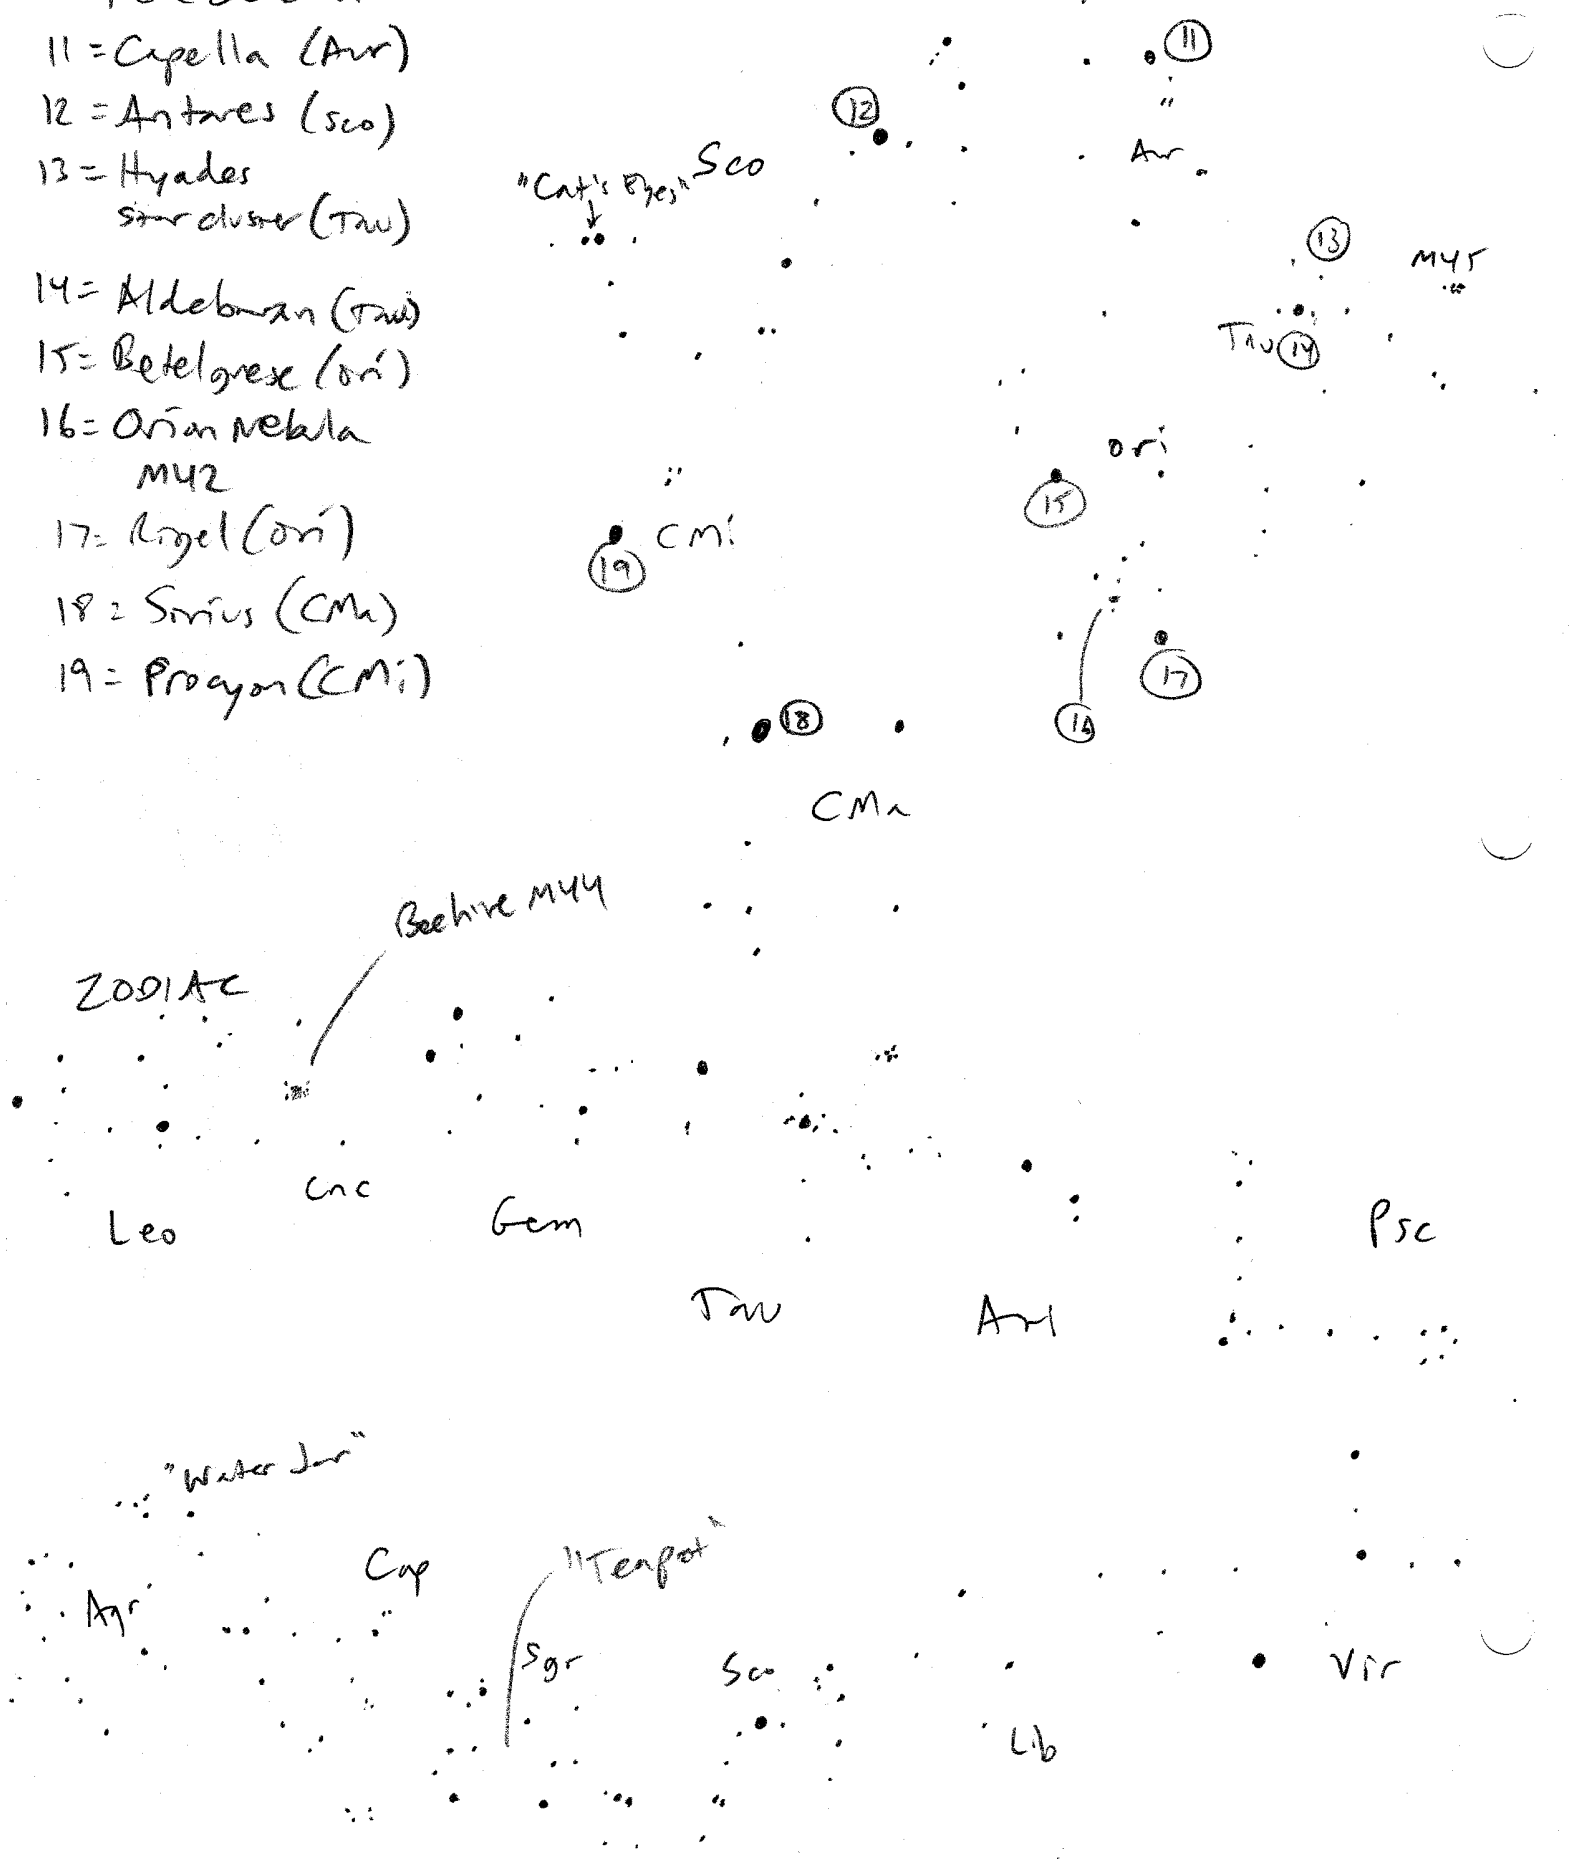 11 = Capella (Aur)
12 = Antares (Sco)
13 = Hyades
star cluster (Tau)
14 = Aldebaran (Tau)
15 = Betelguese (Ori)
16 = Orion Nebula
M42
17 = Rigel (Ori)
18 = Sirius (CMa)
19 = Procyon (CMi)
11
12
Aur
"Cat's Eyes" Sco
13
M45
Tau 14
Ori
15
CMi
19
17
18
16
CMa
Beehive M44
ZODIAC
Cnc
Leo
Gem
Psc
Tau
ArI
"Water Jar"
Cap
"Teapot"
Aqr
Sgr
Sco
Vir
Lib